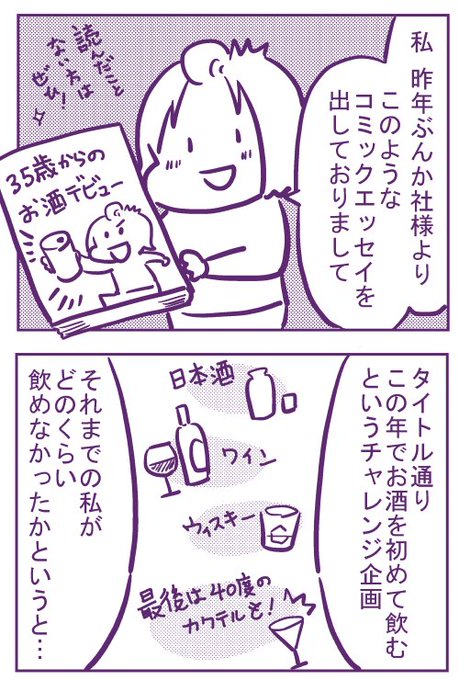 私 昨年ぶんか社様より
このような
コミックエッセイを
出しておりまして
読んだこと
ない方は
ぜひ!
35歳からの
お酒デビュー
タイトル通り
この年でお酒を初めて飲む
というチャレンジ企画
日本酒
ワイン
ウィスキー
最後は40度の
カクテルも!
それまでの私が
どのくらい
飲めなかったかというと…